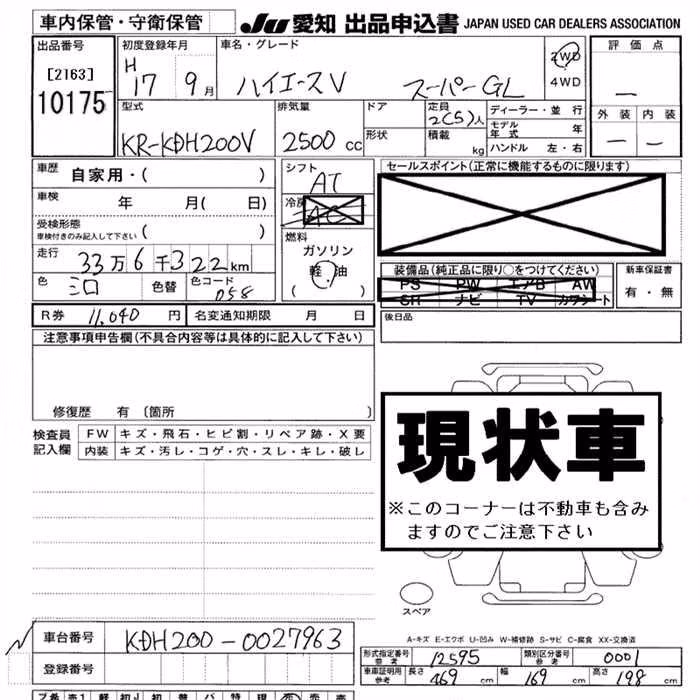 車内保管・守衛保管
JU 愛知 出品申込書 JAPAN USED CAR DEALERS ASSOCIATION
出品番号
[2163]
10175
初度登録年月
H 17 9 月
車名・グレード
ハイエースV スーパーGL
2WD
4WD
評価点
―
外装 内装
― ―
型式
KR-KDH200V
排気量
2500 cc
ドア
形状
定員
2(5)人
積載
kg
ディーラー・並行
モデル年式 年
ハンドル 左・右
車歴
自家用・( )
車検
年 月( 日)
受検形態
車検付きのみ記入して下さい ( )
走行
33万6千322km
色
シロ
色替
色コード
058
シフト
AT
冷房
AC
燃料
ガソリン
軽油
( )
セールスポイント(正常に機能するものに限ります)
装備品(純正品に限り○をつけてください)
PS PW エアB AW
SR ナビ TV カワシート
新車保証書
有・無
R券 11,040 円
名変通知期限 月 日
後日品
注意事項申告欄(不具合内容等は具体的に記入して下さい)
修復歴 有 〔箇所 〕
検査員記入欄
FW キズ・飛石・ヒビ割・リペア跡・X要
内装 キズ・汚レ・コゲ・穴・スレ・キレ・破レ
現状車
※このコーナーは不動車も含み
ますのでご注意下さい
スペア
A-キズ E-エクボ U-凹み W-補修跡 S-サビ C-腐食 XX-交換済
車台番号 KDH200-0027963
登録番号
形式指定番号
参考 12595
類別区分番号
参考 0001
車車証明用
参考 長さ 469 cm 幅 169 cm 高さ 198 cm